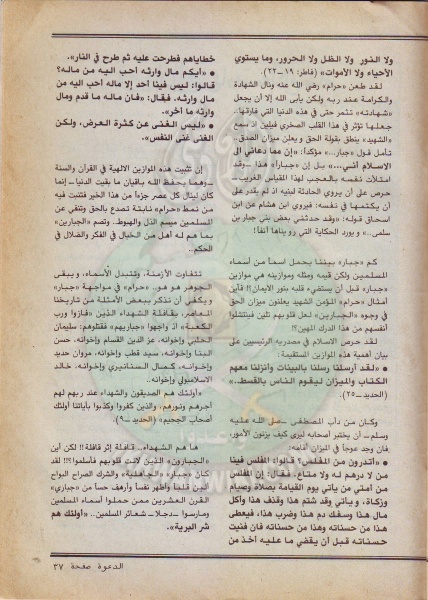 ولا النور ولا الظل ولا الحرور، وما يستوي
الأحياء ولا الأموات» (فاطر: ١٩ــ٢٢).
لقد طعن «حرام» رضي الله عنه ونال الشهادة
والكرامة عند ربه ولكن يأبى الله إلا أن يجعل
«شهادته» تثمر حتى في هذه الدنيا التي فارقها..
جعلها تؤثر في هذا القلب الصخري فيلين اذ سمع
«الشهيد» ينطق بقولة الحق و يعلن ميزان الصدق..
تأمل قول «جبار...» مؤكداً: «إن مما دعاني الى
الاسلام أنني...» بل إن «جباراً» هذا ــ وقد
امتلأت نفسه بالعجب لهذا المقياس الغريب ــ
حرص على أن يروي الحادثة لبنيه اذ لم يقدر على
أن يكتمها في نفسه: فيروي ابن هشام عن ابن
اسحاق قوله: «وقد حدثني بعض بني جبار بن
سلمى..» و يورد الحكاية التي رويناها آنفاً!
كم «جبار» بيننا يحمل اسماً من أسماء
المسلمين ولكن قيمه ومثله وموازينه هي موازين
«جبار» قبل أن يستضيء قلبه بنور الايمان!! فأين
أمثال «حرام» المؤمن الشهيد يعلنون ميزان الحق
في وجوه «الجبارين» لعل قلوبهم تلين فينتشلوا
أنفسهم من هذا الدرك المهين؟!
لقد حرص الاسلام في مصدريه الرئيسيين على
بيان أهمية هذه الموازين المستقيمة:
● «لقد أرسلنا رسلنا بالبينات وأنزلنا معهم
الكتاب والميزان ليقوم الناس بالقسط..»
(الحديد ــ ٢٥).
وكان من دأب المصطفى ــ صلى الله عليه
وسلم ــ أن يختبر أصحابه ليرى كيف يزنون الأمور،
فإن وجد عوجاً في الميزان أقامه:
● «أتدرون من المفلس؟ قالوا: المفلس فينا
من لا درهم له ولا متاع، فقال: إن المفلس
من أمتي من يأتي يوم القيامة بصلاة وصيام
وزكاة، و يأتي وقد شتم هذا وقذف هذا وأكل
مال هذا وسفك دم هذا وضرب هذا، فيعطى
هذا من حسناته وهذا من حسناته فان فنيت
حسناته قبل أن يقضي ما عليه أخذ من
خطاياهم فطرحت عليه ثم طرح في النار».
● «أيكم مال وارثه أحب اليه من ماله؟
قالوا: ليس فينا أحد إلا ماله أحب اليه من
مال وارثه، فقال: «فان ماله ما قدم ومال
وارثه ما أخر».
● «ليس الغنى عن كثرة العرض، ولكن
الغنى غنى النفس».
إن تثبيت هذه الموازين الالهية في القرآن والسنة
ــ وهما بحفظ الله باقيان ما بقيت الدنيا ــ إنما
كان لينال كل عصر جزءاً من هذا الخير فتنبت فيه
من نمط «حرام» نابتة تصدع بالحق وتنفي عن
المسلمين ميسم الذل والهبوط.. وتصم «الجبارين»
بما هم له أهل من الخبال في الفكر والضلال في
الحكم..
تتفاوت الأزمنة، وتتبدل الأسماء، و يبقى
الجوهر هو هو.. «حرام» في مواجهة «جبار»
و يكفي أن نذكر ببعض الأمثلة من تاريخنا
المعاصر.. بقافلة الشهداء الذين «فازوا ورب
الكعبة» اذ واجهوا «جباريهم» فقتلوهم: سليمان
الحلبي وإخوانه، عز الدين القسام وإخوانه، حسن
البنا وإخوانه، سيد قطب وإخوانه، مروان حديد
وإخوانه، كمال السنانيري وإخوانه، خالد
الاسلامبولي وإخوانه..
● «أولئك هم الصديقون والشهداء عند ربهم لهم
أجرهم ونورهم، والذين كفروا وكذبوا بآياتنا أولئك
أصحاب الجحيم» (الحديد ــ
ها هم الشهداء.. قافلة إثر قافلة!! لكن أين
«الجبارون» الذين لانت قلوبهم فأسلموا؟!! لقد
كان «جبار» «الجاهلية» والشرك الصراح البواح
ألين قلباً وأطهر نفساً وأرهف حساً من «جباري»
القرن العشرين ممن حملوا أسماء المسلمين
ومارسوا ــ دجلاً ــ شعائر المسلمين.. «أولئك هم
شر البرية».
الدعوة صفحة ٣٧